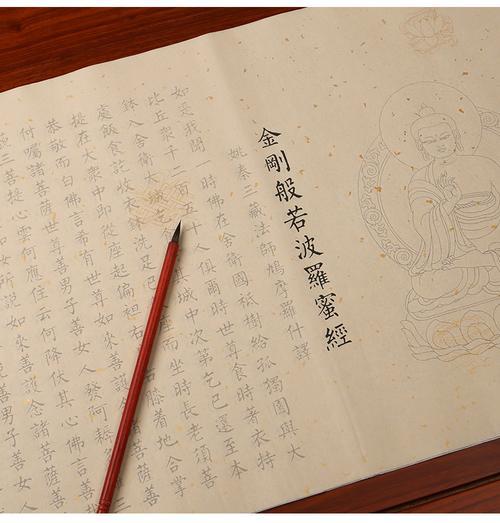 金剛般若波羅蜜經
姚秦三藏法師鳩摩羅什譯
如是我聞一時佛在舍衛國祇樹給孤獨園與大
比丘眾千二百五十人俱爾時世尊食時著衣持
鉢入舍衛大城乞其城中次第乞已還至本
處飯食訖收衣鉢洗足已座而坐時長老須菩
提在大眾中即從座起偏袒右右膝著地合掌
恭敬而白佛言希有世尊如來善護念諸菩薩善
付囑諸菩薩世尊善男子善女人發阿耨
三菩提心云何應住云何降伏其心佛言善
所說如來善護念諸菩薩善
善男子善女人